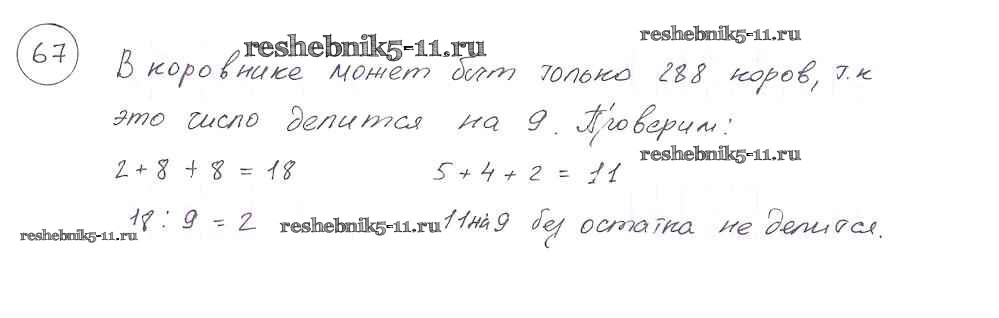 67
reshebnik5-11.ru
reshebnik5-11.ru
В коровнике может быт только 288 коров, т.к
это число делится на 9. Проверим:
reshebnik5-11.ru
2 + 8 + 8 = 18 5 + 4 + 2 = 11
18 : 9 = 2 11 на 9 без остатка не делится.
reshebnik5-11.ru
reshebnik5-11.ru